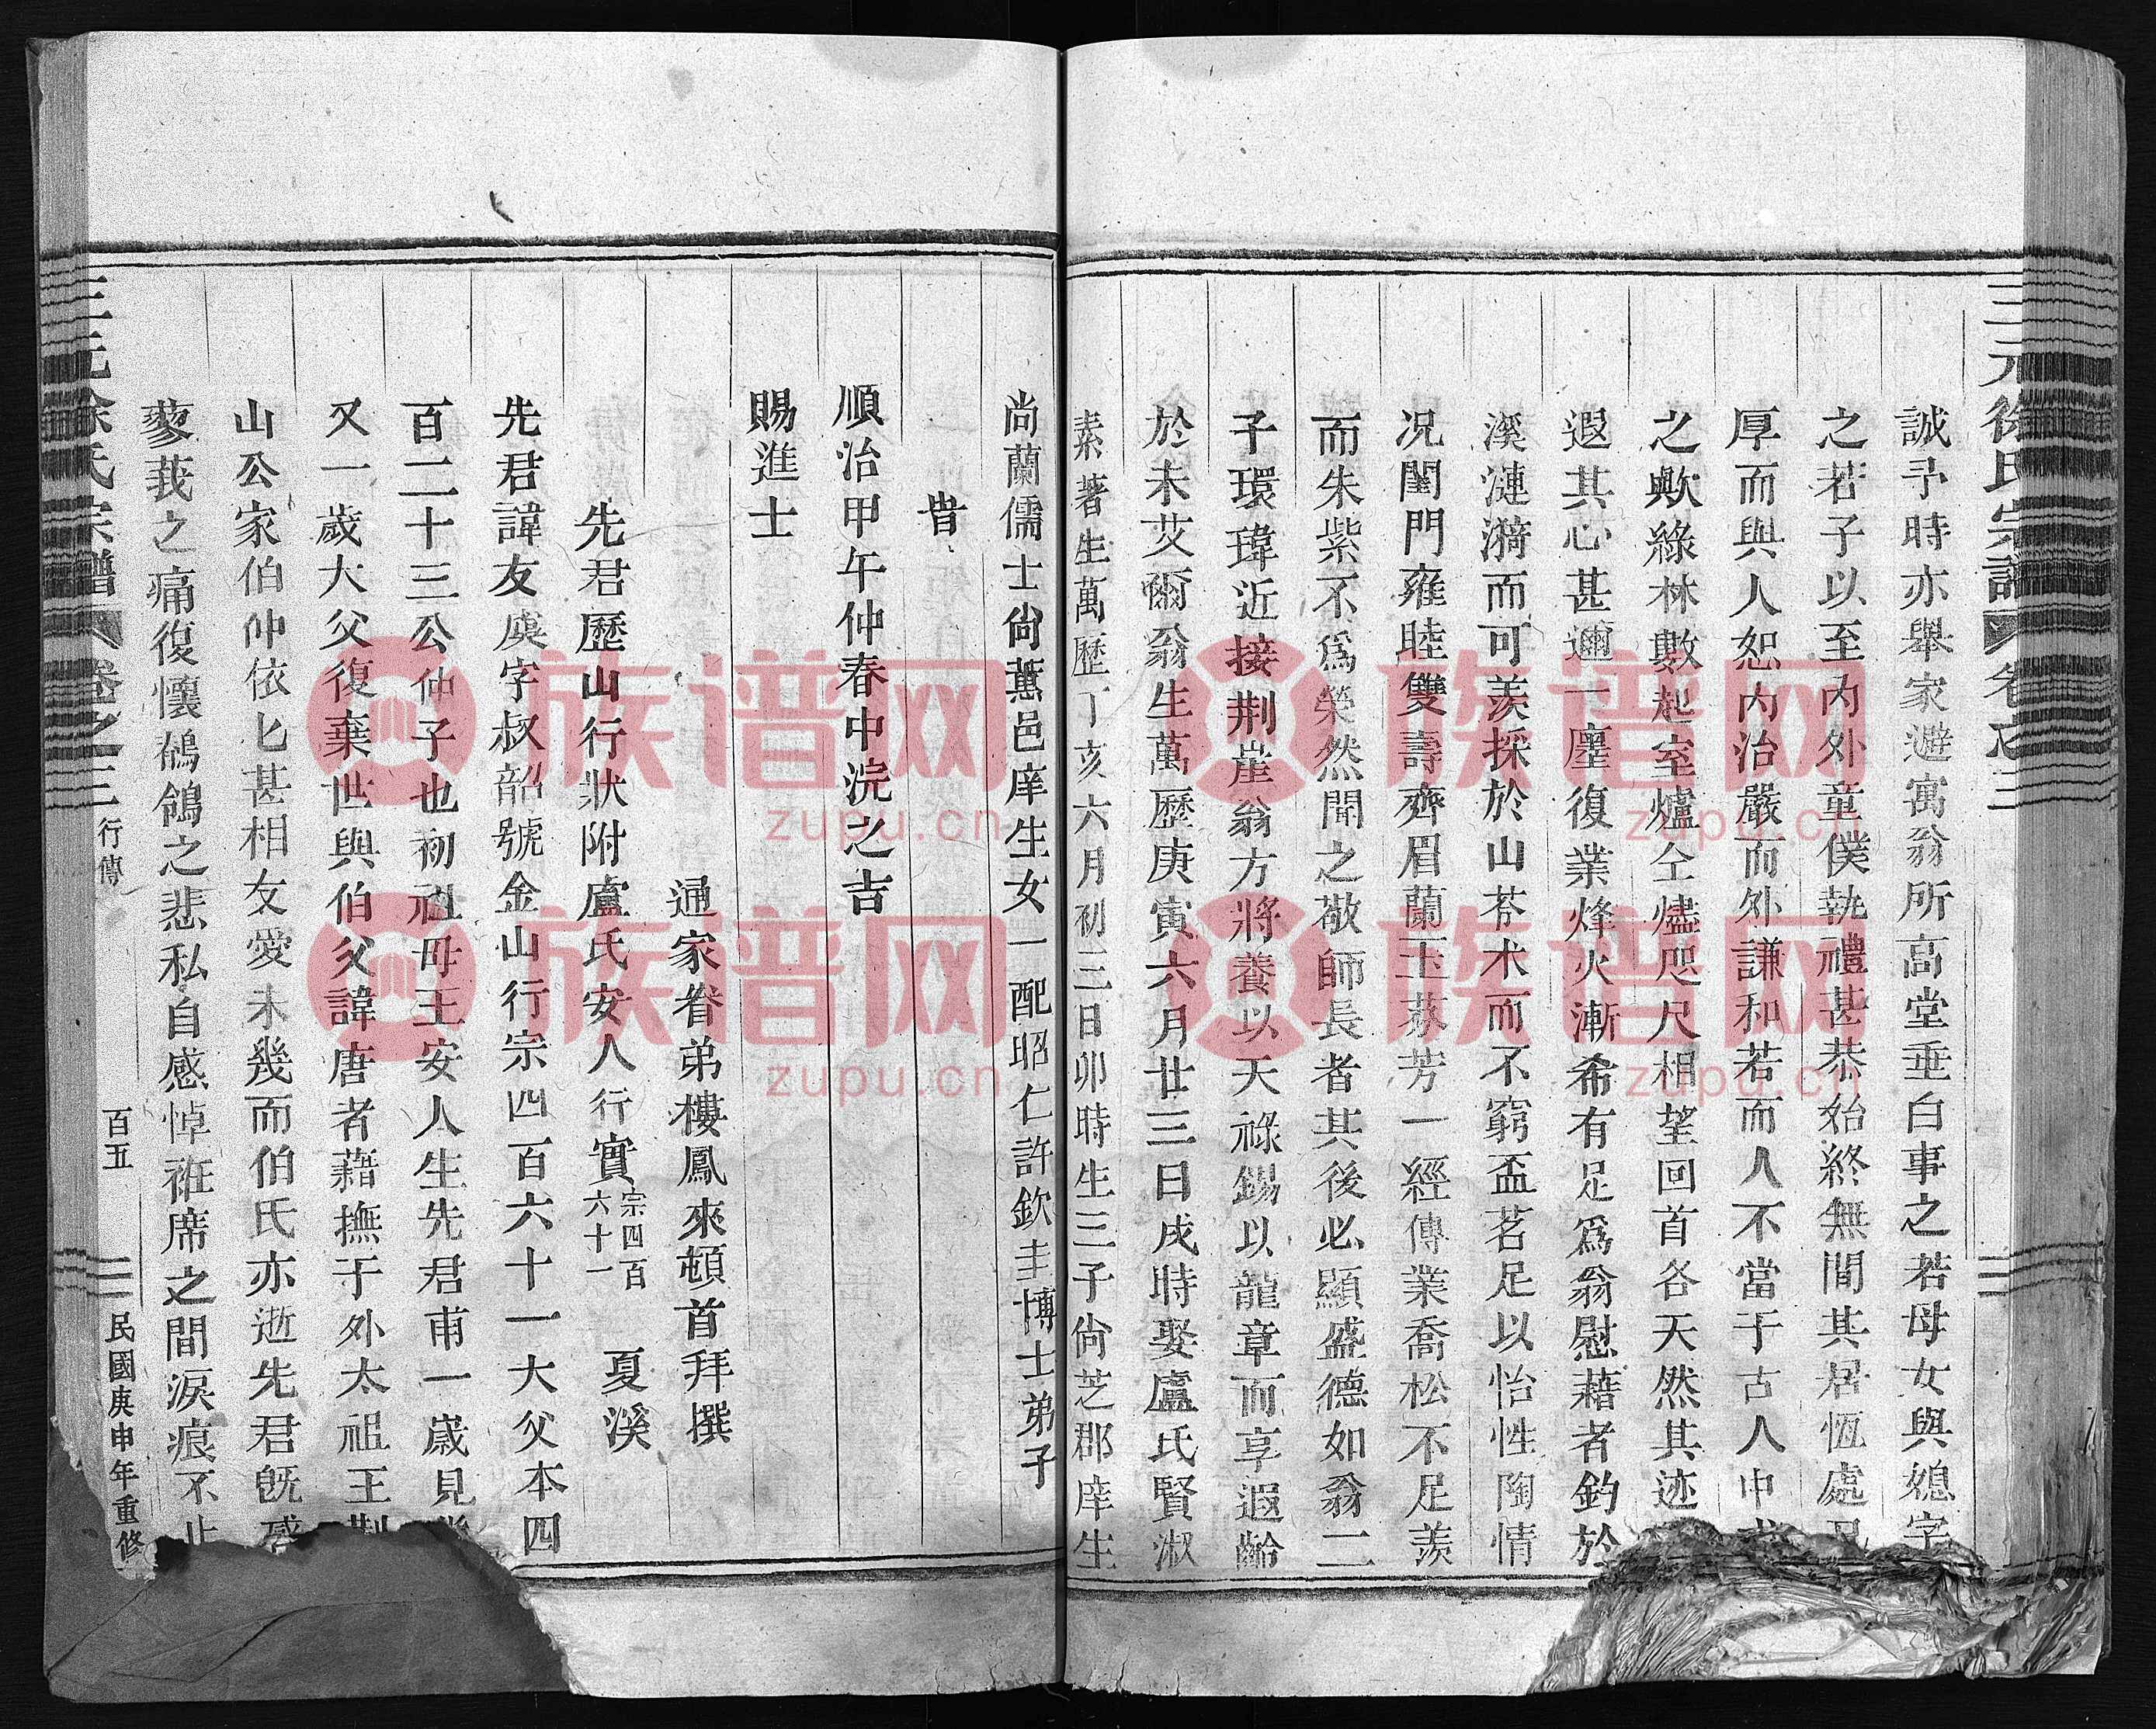 三元徐氏宗譜 卷之三
誠予時亦舉家避寓翁所高堂垂白事之若母女與媳字
之若子以至內外童僕執禮甚恭始終無間其居恆處
厚而與人恕內治嚴而外謙和若而人不當于古人中
之歟綠林數起室爐仝燼咫尺相望回首各天然其迹
遐其心甚邇一廛復業烽火漸希有足爲翁慰藉者釣於
溪漣漪而可羨採於山苓朮而不窮盃茗足以怡性陶情
况閨門雍睦雙壽齊眉蘭玉芬芳一經傳業喬松不足羨
而朱紫不爲榮然聞之敬師長者其後必顯盛德如翁二
子環瑋近接荆崖翁方將養以天祿錫以龍章而享遐齡
於未艾爾翁生萬歷庚寅六月廿三日戌時娶盧氏賢淑
素著生萬歷丁亥六月初三日卯時生三子尙芝郡庠生
尚蘭儒士尙薰邑庠生女一配昭仁許欽圭博士弟子
旹
順治甲午仲春中浣之吉
賜進士
通家眷弟樓鳳來頓首拜撰
先君歷山行狀附盧氏安人行實 宗四百六十一 夏溪
先君諱友虞字叔韶號金山行宗四百六十一大父本四
百二十三公仲子也初祖母王安人生先君甫一歲見
又一歲大父復棄世與伯父諱唐者藉撫于外太祖王荆
山公家伯仲依匕甚相友愛未幾而伯氏亦逝先君旣感
蓼莪之痛復懷鴒鴿之悲私自感悼袵席之間淚痕不止
三元徐氏宗譜 卷之三 行傳 百五 民國庚申年重修
族谱网
zupu.cn
族谱网
zupu.cn
族谱网
zupu.cn
族谱网
zupu.cn